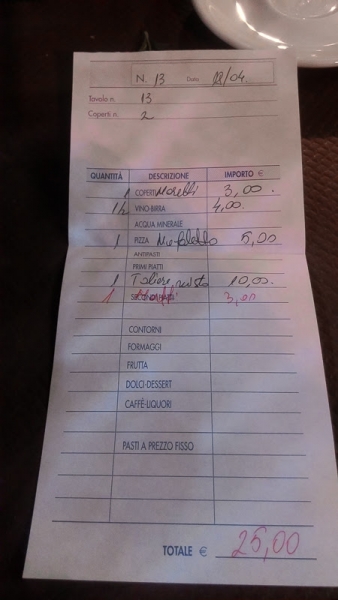 N. 13 Data 18/04.
Tavolo n. 13
Coperti n. 2
QUANTITÀ DESCRIZIONE IMPORTO €
1 COPERTI Moretti 3,00.
1/2 VINO-BIRRA 4,00.
ACQUA MINERALE
1 PIZZA 5,00
ANTIPASTI
PRIMI PIATTI
1 Taliere misto 10,00.
1 3,00
CONTORNI
FORMAGGI
FRUTTA
DOLCI-DESSERT
CAFFÈ-LIQUORI
PASTI A PREZZO FISSO
TOTALE € 25,00